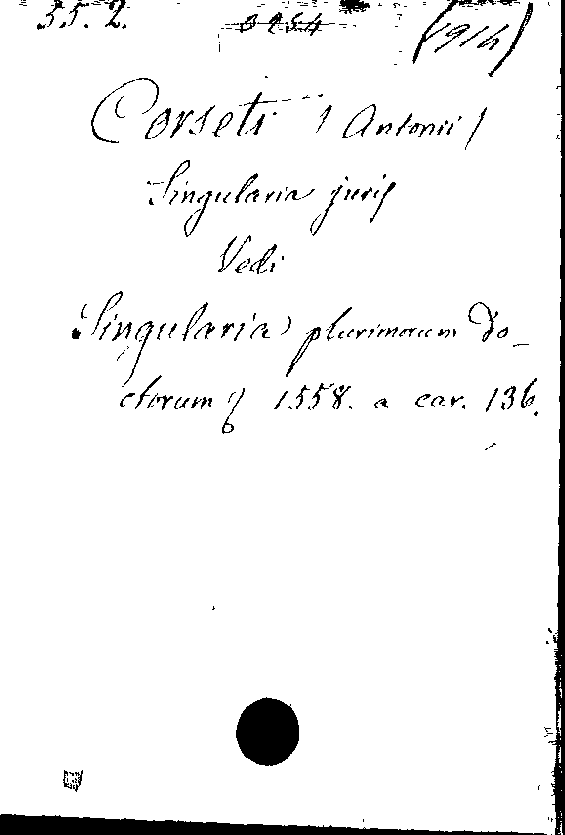 55. 2. 3254 (914)
Corseti (Antonii)
Singularia juris
Vedi
Singularia plurimorum Do-
ctorum 1558. a car. 136.